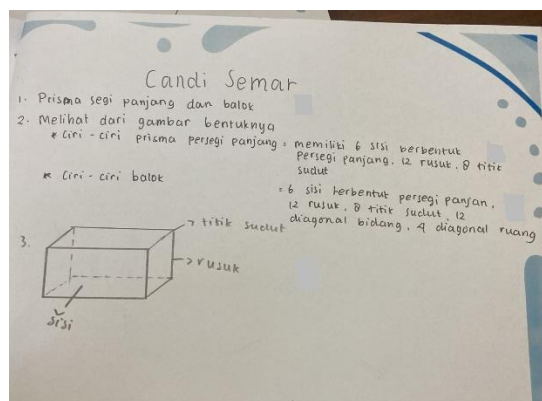 Candi Semar
1. Prisma segi panjang dan balok
2. Melihat dari gambar bentuknya
* Ciri - ciri prisma persegi panjang = memiliki 6 sisi berbentuk
persegi panjang, 12 rusuk, 8 titik
sudut
* Ciri - ciri balok
= 6 sisi berbentuk persegi panjan,
12 rusuk, 8 titik sudut, 12
diagonal bidang, 4 diagonal ruang
3.
titik sudut
rusuk
sisi